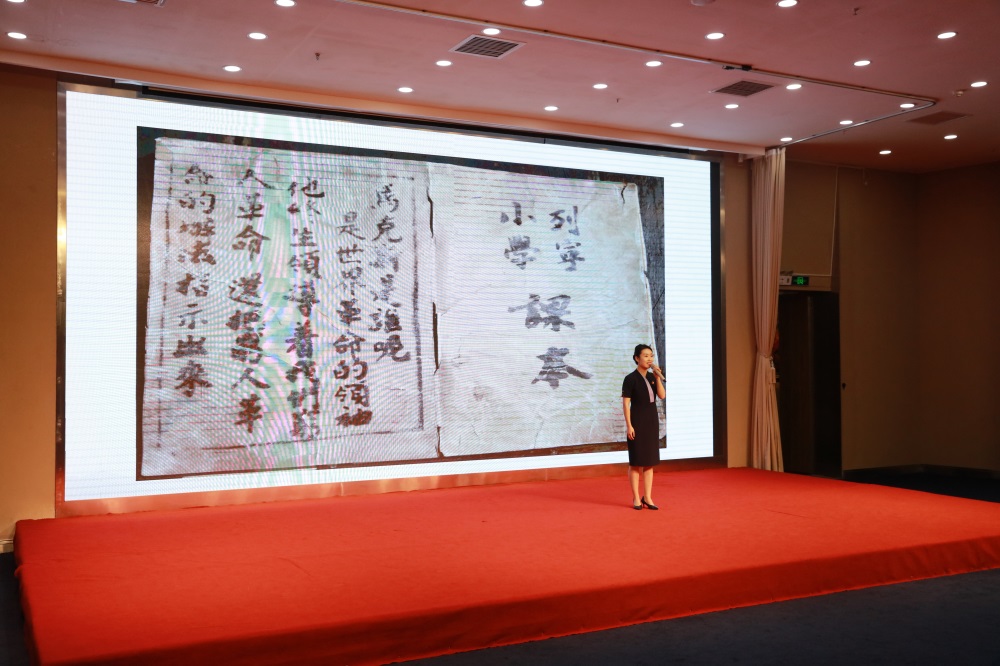 列宁
小学
課本
馬克斯是誰呢
是世界革命的領袖
他 生領導着我們
人革命 還把窮人革
命的辦法指示出來